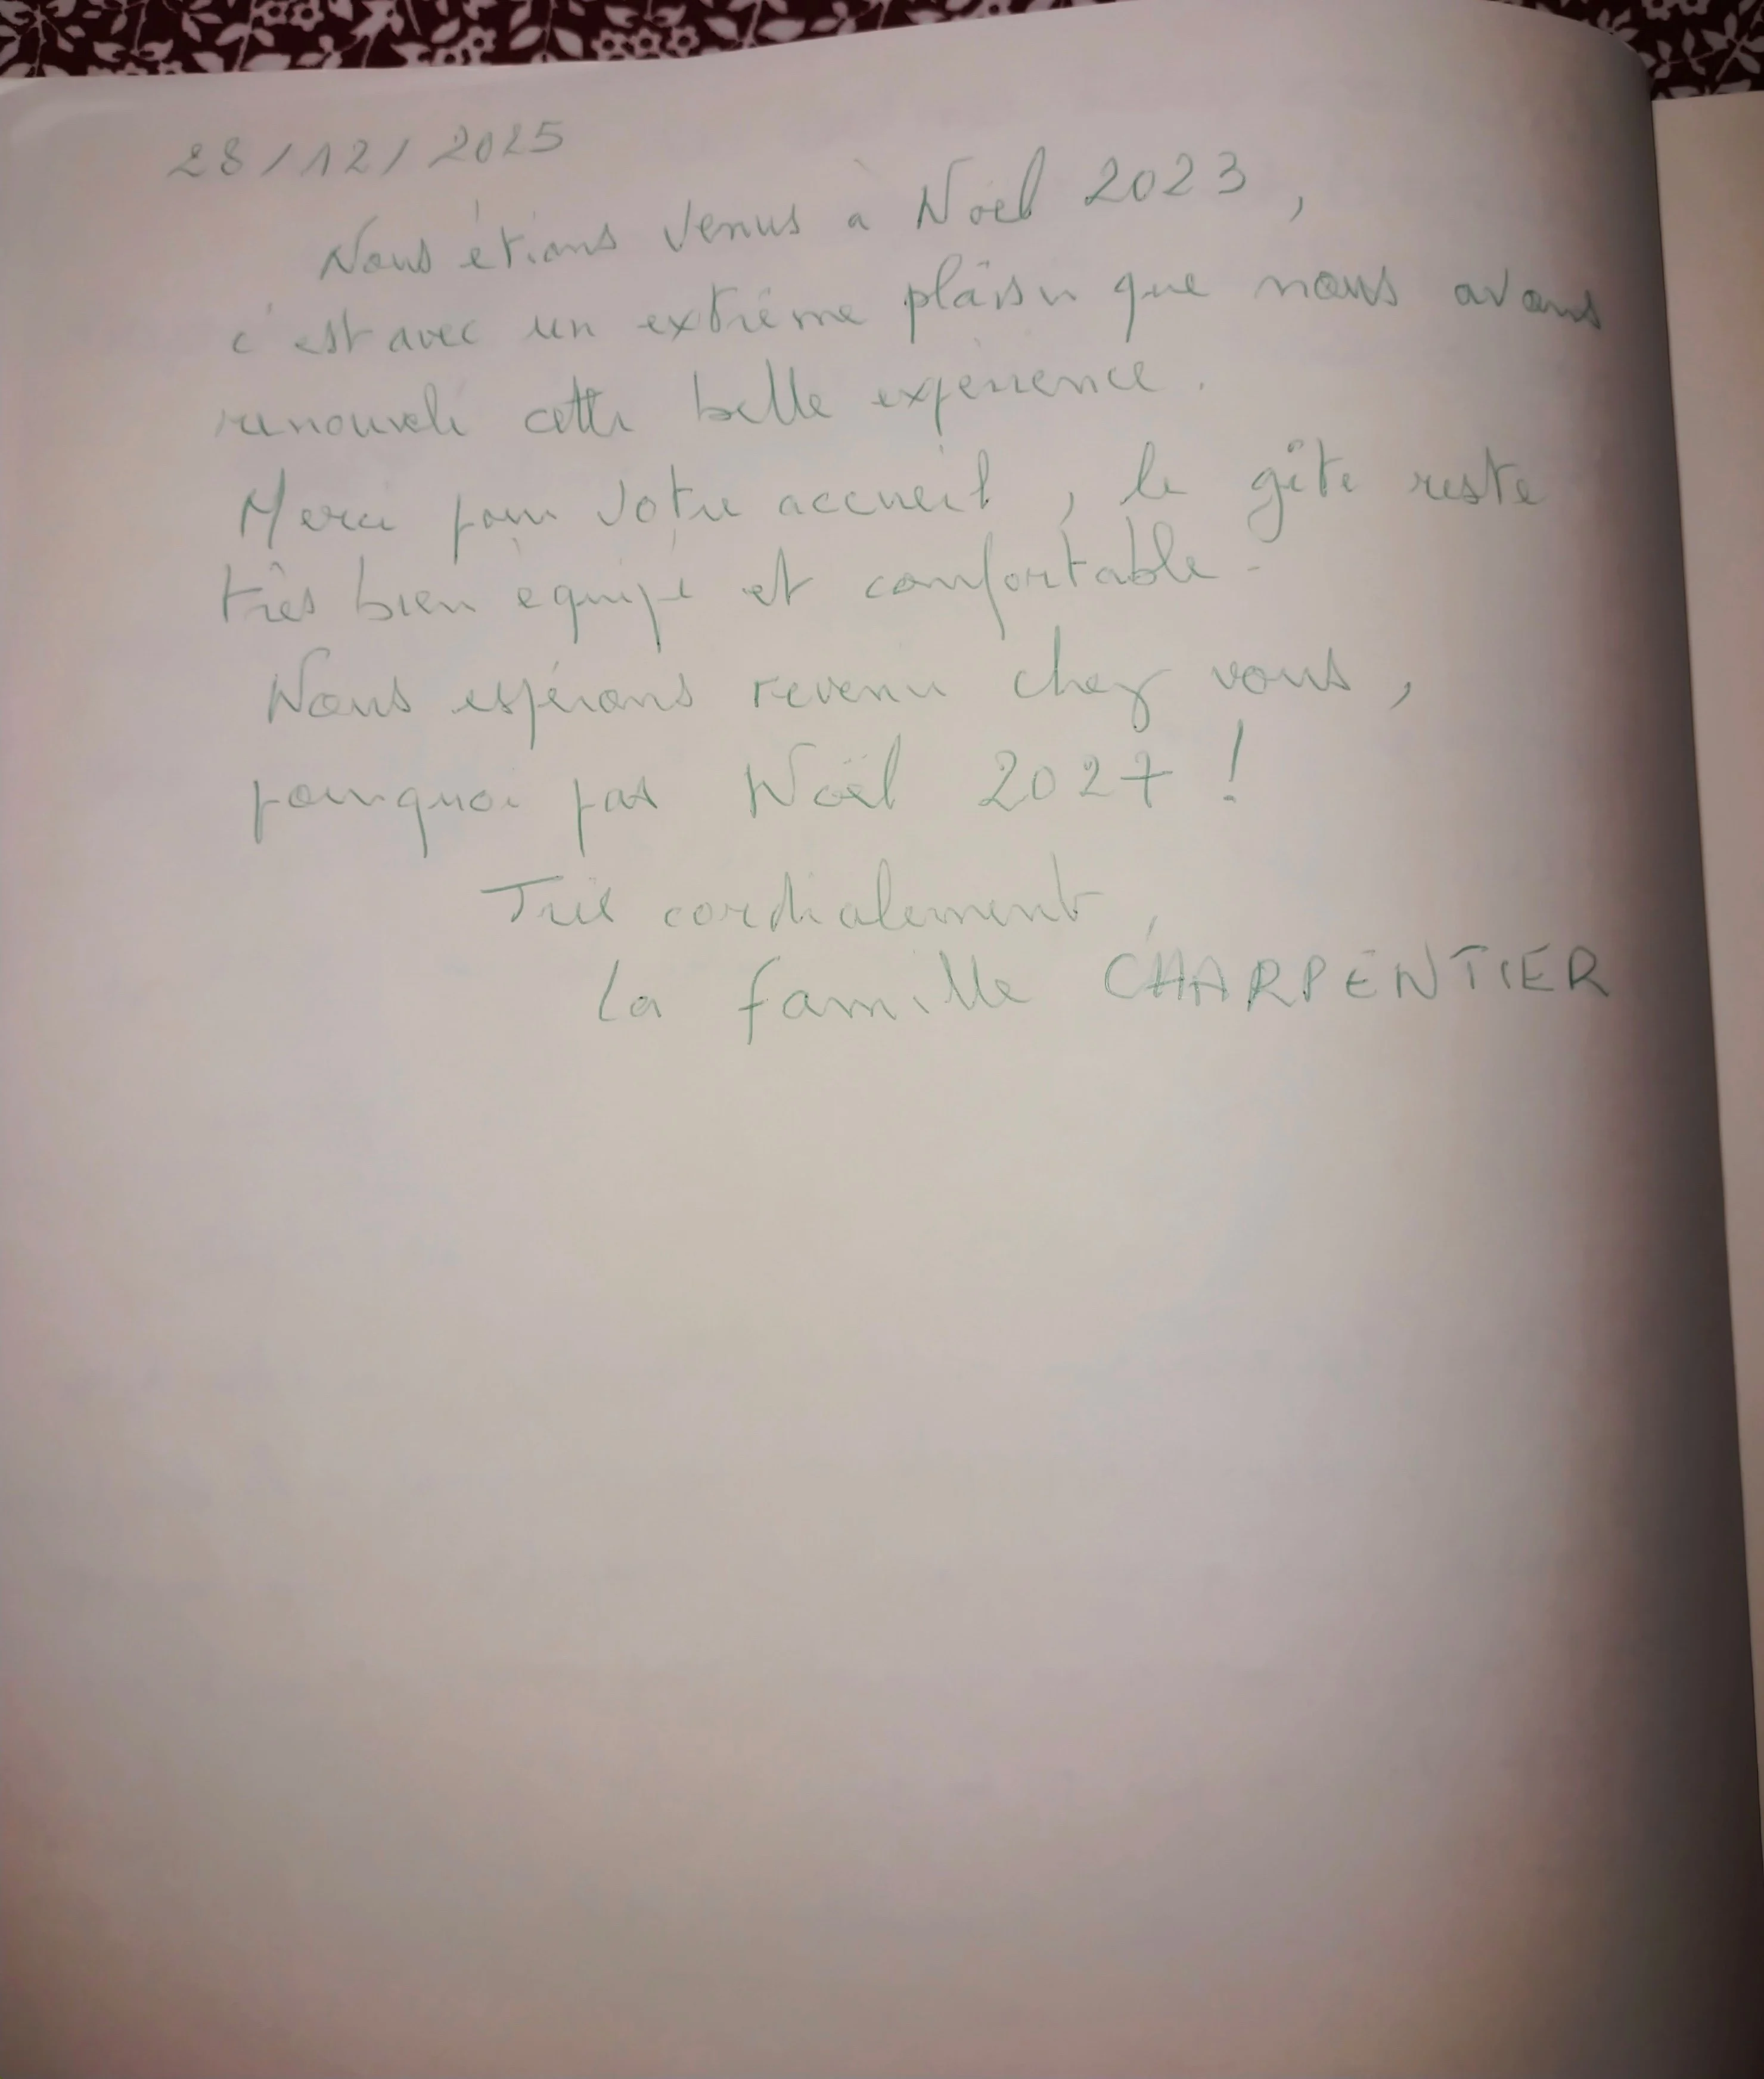 28/12/2025
Nous étions venus à Noël 2023,
c'est avec un extrême plaisir que nous avons
renouvelé cette belle expérience.
Merci pour votre accueil, le gîte reste
très bien équipé et confortable.
Nous espérons revenir chez vous,
pourquoi pas Noël 2027 !
Très cordialement,
La famille CHARPENTIER